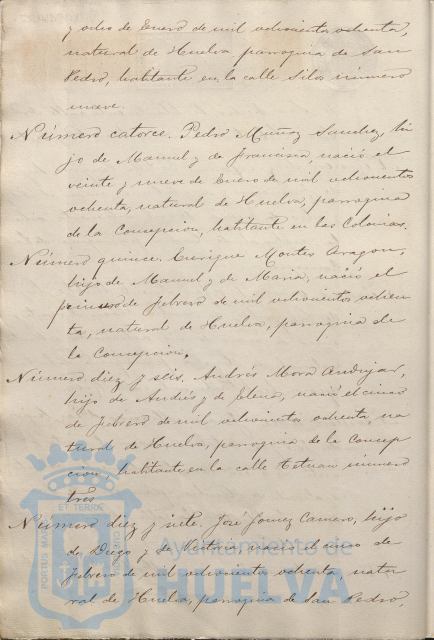 y ocho de Enero de mil ochocientos ochenta,
natural de Huelva parroquia de San
Pedro, habitante en la calle Silos número
nueve.
Número catorce. Pedro Muñoz Sanchez, hi
jo de Manuel y de Francisca, nació el
veinte y nueve de Enero de mil ochocientos
ochenta, natural de Huelva, parroquia
de la Concepcion, habitante en las Colonias.
Número quince. Enrique Montes Aragon,
hijo de Manuel y de Maria, nació el
primero de Febrero de mil ochocientos ochen
ta, natural de Huelva, parroquia de
la Concepcion.
Número diez y seis. Andrés Mora Andujar,
hijo de Andrés y de Elena, nació el cinco
de Febrero de mil ochocientos ochenta, na
tural de Huelva, parroquia de la Concep
cion, habitante en la calle Tetuan número
tres
Número diez y siete. José Gomez Camero, hijo
de Diego y de Victoria, nació el cinco de
Febrero de mil ochocientos ochenta, natu
ral de Huelva, parroquia de San Pedro,
PORTUS MARIS
ET TERRE
CUSTODIA
Ayuntamiento de
HUELVA